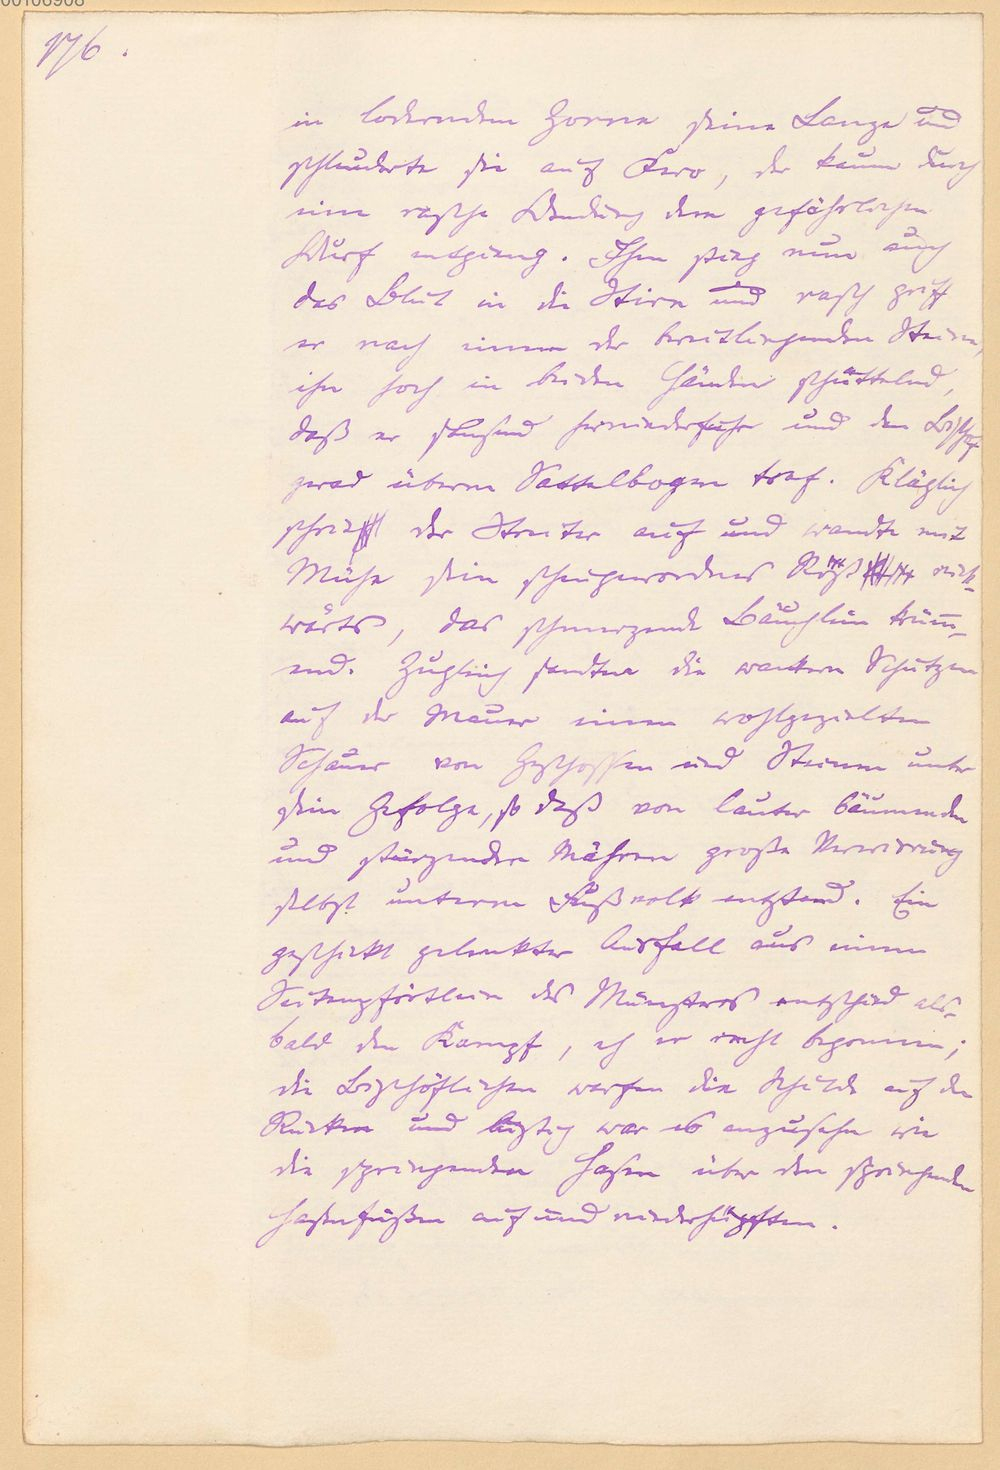 176.
in loderndem Zorne seine Lanze und
schleuderte sie auf Fero, der kaum durch
eine rasche Wendung dem gefährlichen
Wurf entgieng. Ihm stieg nun auch
das Blut in die Stirn und rasch griff
er nach einem der bereitliegenden Steine,
ihn hoch in beiden Händen schüttelnd,
daß er sausend herniederfuhr und den Bischof
grad überm Sattelbogen traf. Kläglich
schrie der Streiter auf und wandte mit
Mühe sein scheugewordnes Roß rück-
wärts, das schmerzende Bäuchlein krüm-
end. Zugleich sandten die wackern Schützen
auf der Mauer einen wohlgezielten
Schauer von Geschossen und Steinen unter
sein Gefolge, so daß von lauter bäumenden
und stürzenden Mähren große Verwirrung
selbst unterm Fußvolk entstand. Ein
geschickt gelenkter Ausfall aus einem
Seitenpförtlein des Münsters entschied als-
bald den Kampf, eh er recht begonnen;
die Bischöflichen warfen die Schilde auf den
Rücken und lustig war es anzusehn wie
die springenden Hasen über den springenden
Hasenfüßen auf und niederhüpften.